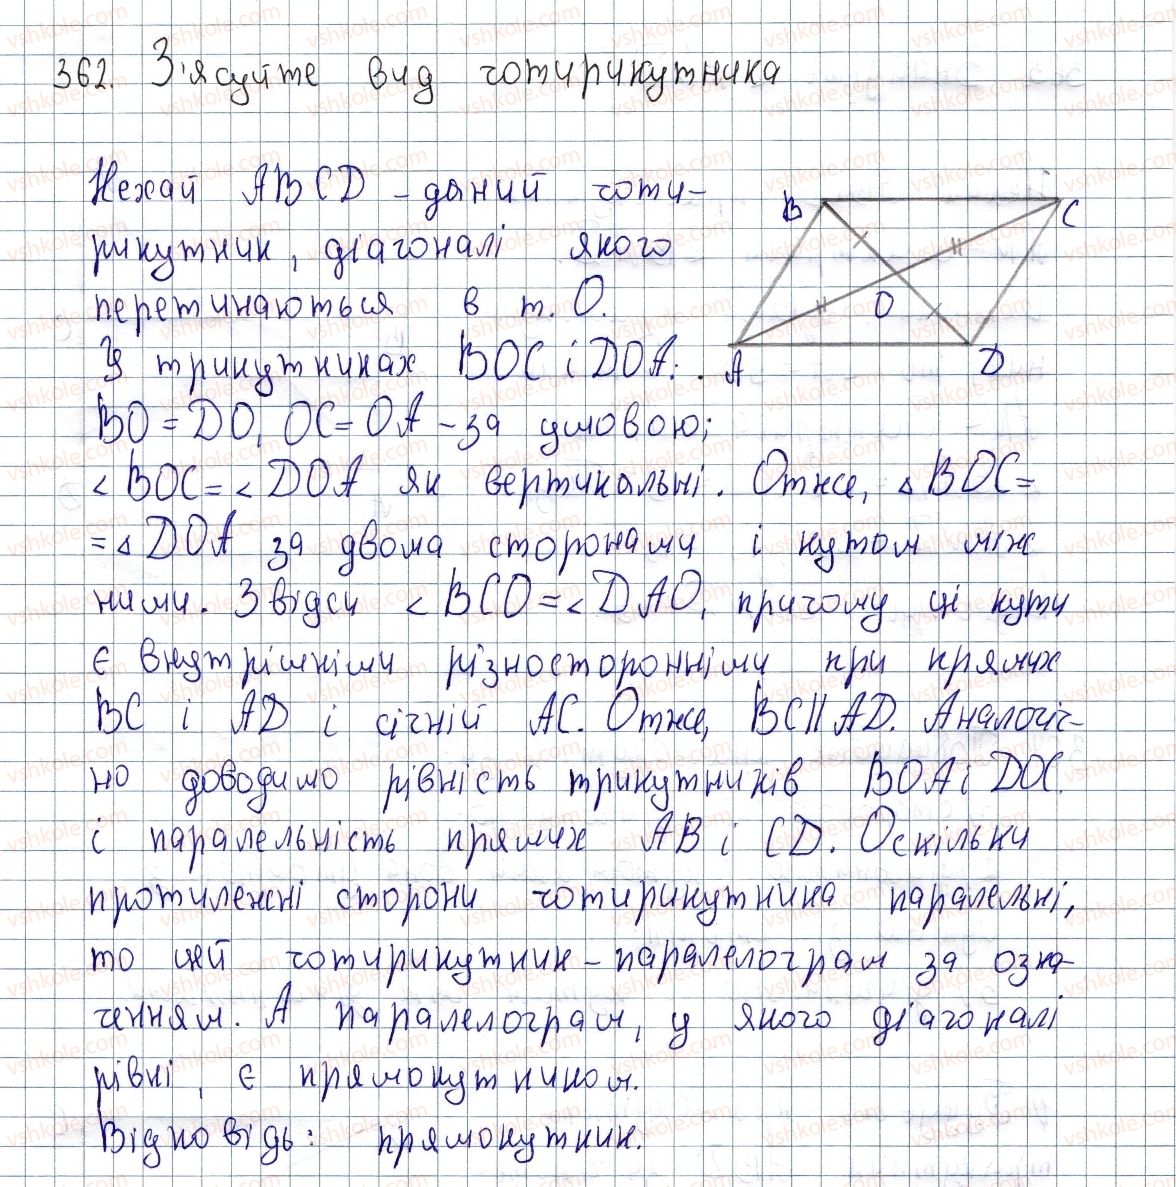 362. З'ясуйте вид чотирикутника
Нехай ABCD – даний чоти-
рикутник, діагоналі якого
перетинаються в т. О.
У трикутниках BOC і DOA:
BO = DO, OC = OA – за умовою;
∠BOC = ∠DOA як вертикальні. Отже, △BOC =
= △DOA за двома сторонами і кутом між
ними. Звідси ∠BCO = ∠DAO, причому ці кути
є внутрішніми різносторонніми при прямих
BC і AD і січній AC. Отже, BC || AD. Аналогіч-
но доводимо рівність трикутників BOA і DOC
і паралельність прямих AB і CD. Оскільки
протилежні сторони чотирикутника паралельні,
то цей чотирикутник – паралелограм за озна-
ченням. А паралелограм, у якого діагоналі
рівні, є прямокутником.
Відповідь: прямокутник.
B
C
O
A
D
vshkole.com